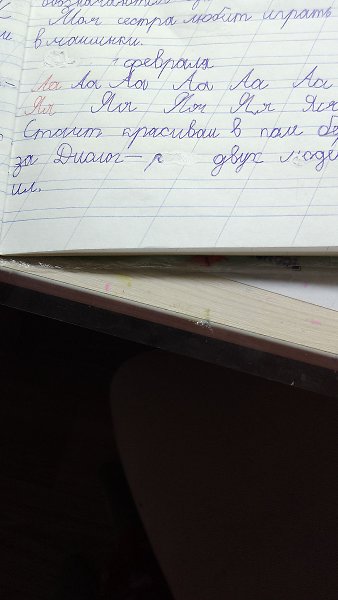 Моя сестра любит играть
в машинки.
февраля
Аа Аа Аа Аа Аа Аа
Яя Яя Яя Яя Яя
Стоит красивая в поле бе
за Диалог- р двух люде
ил.